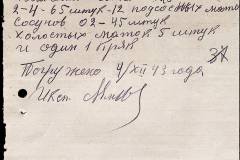 2-4-65 штук-12 подсосных мато
Сосунов 02-45 штук
Холостых маток 5 штук
и один 1 хряк
37
Погружено 4/XII 43 года.